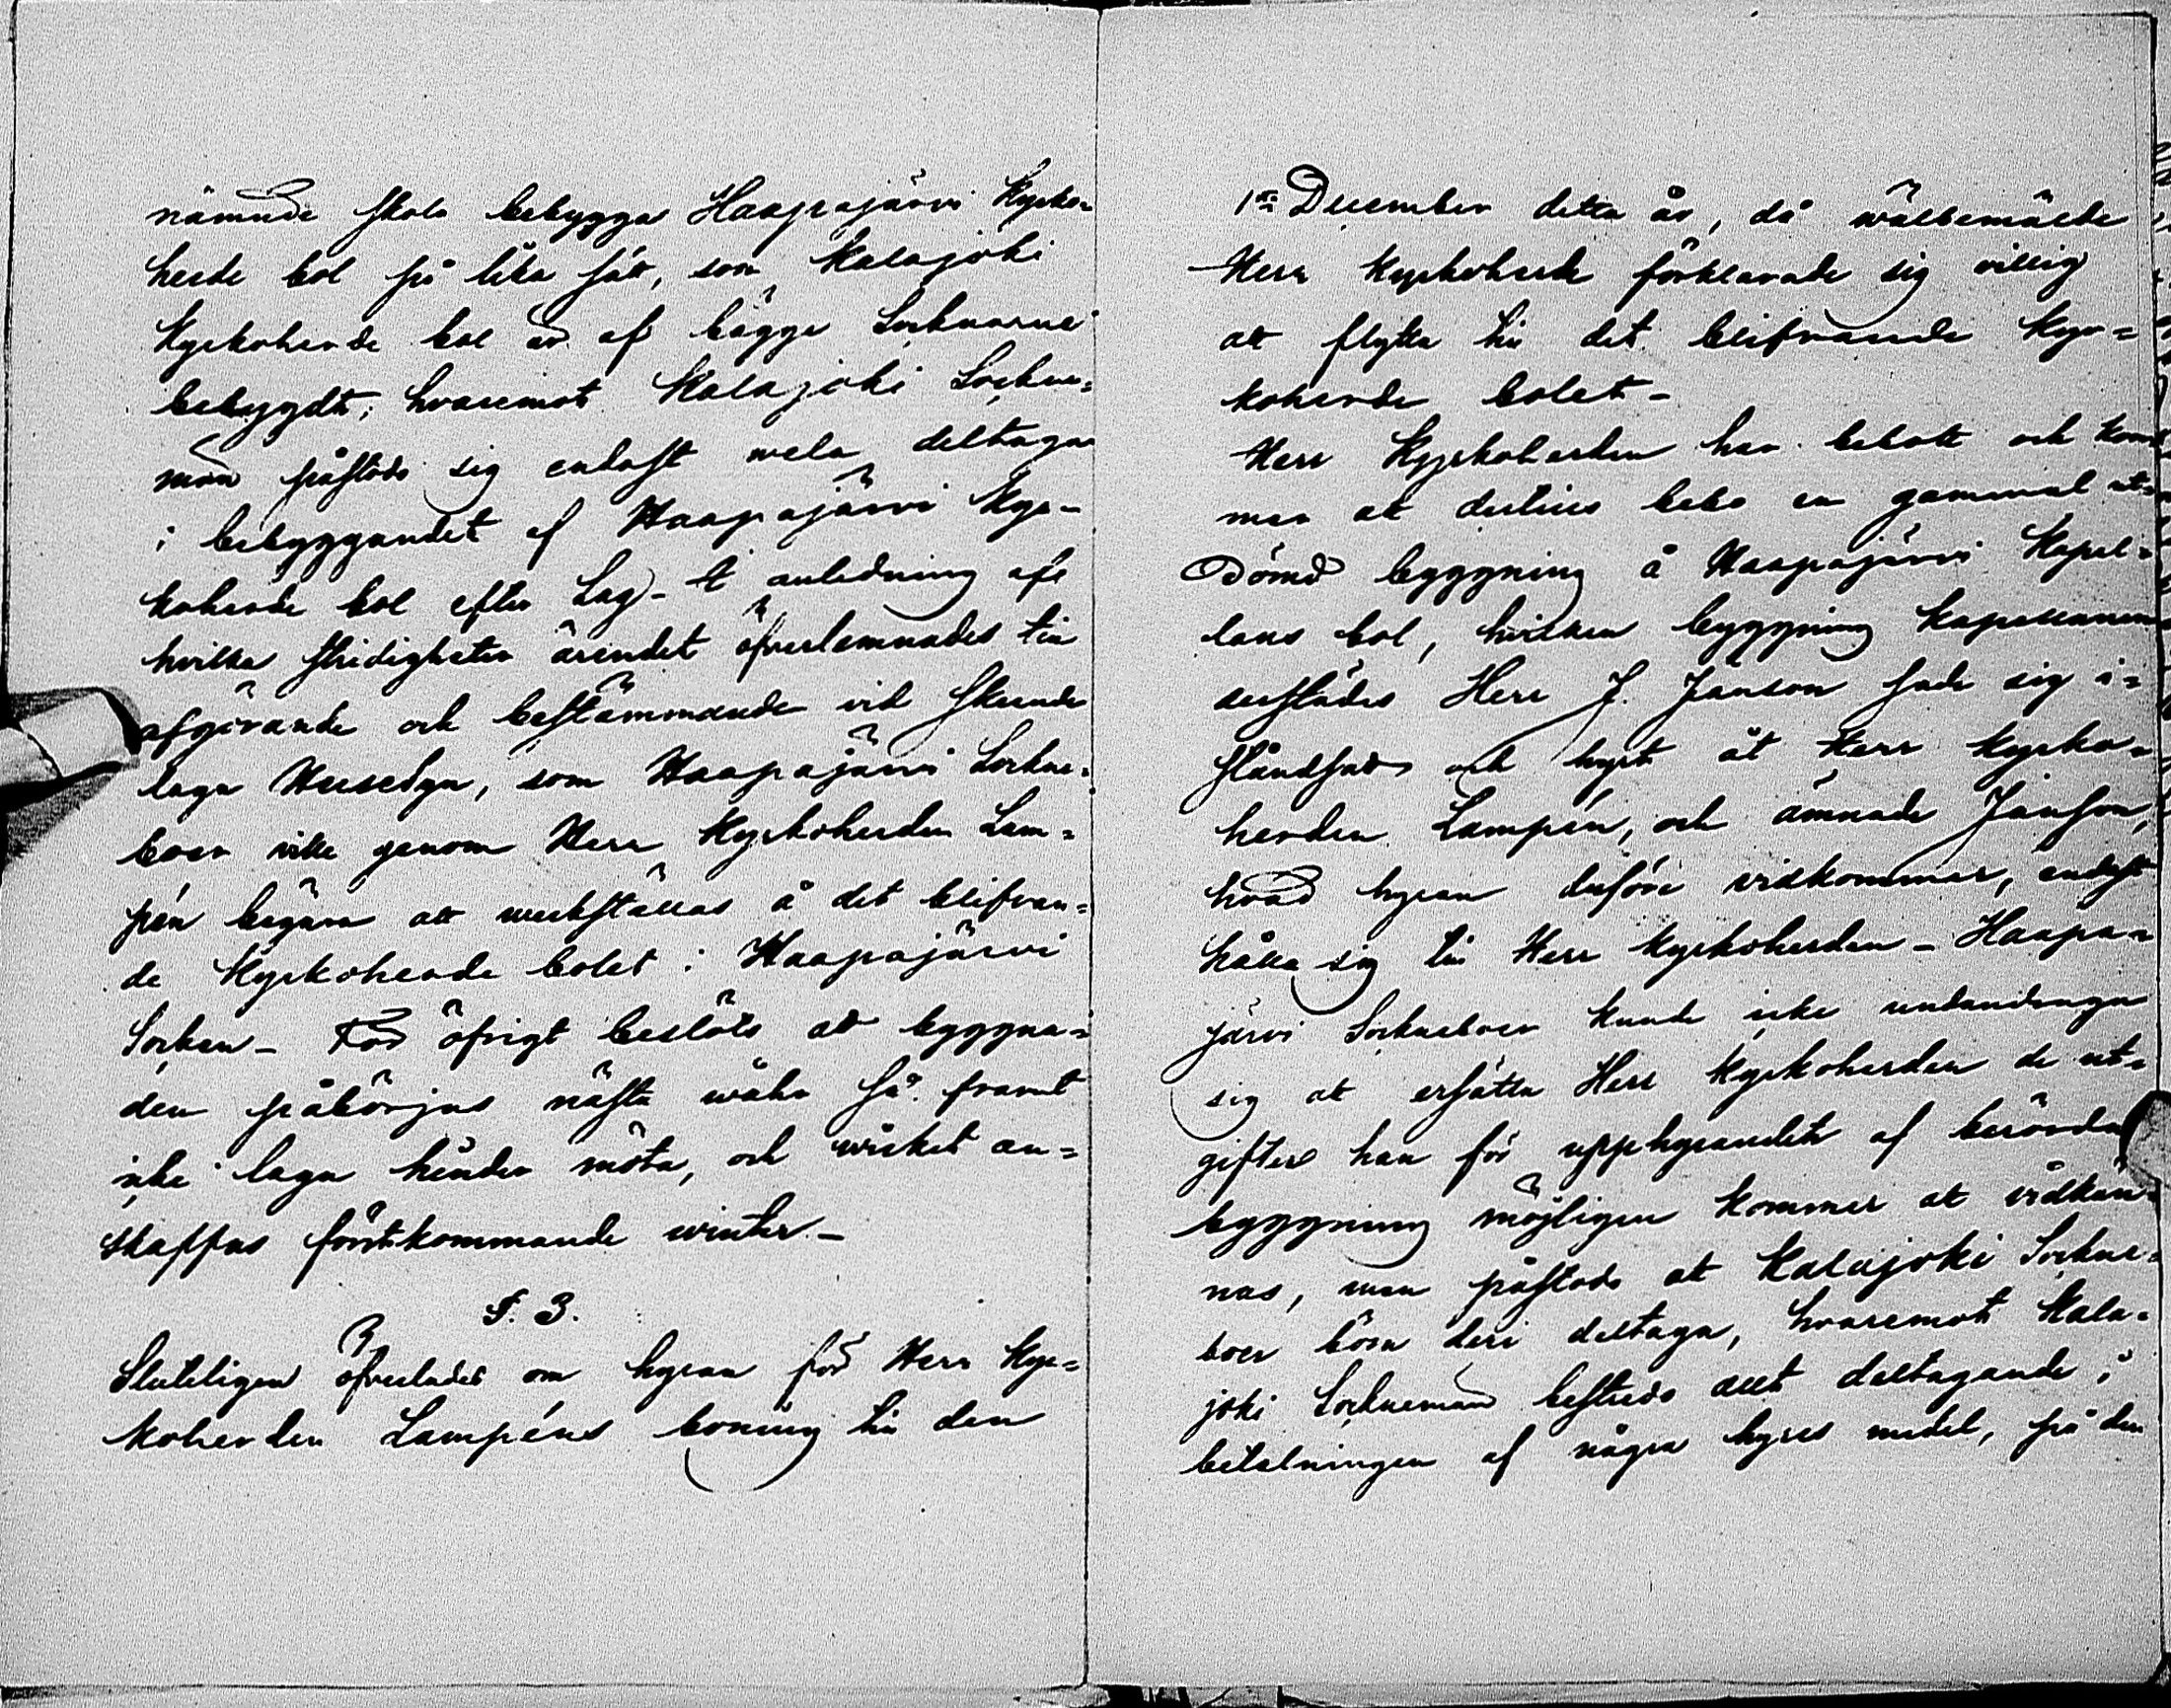 nämnde skola bebygga Haapajärvi Kyrko-
herde bol på lika sätt, som Kalajoki
Kyrkoherde bol är af bägge Socknarne
bebygdt; hvaremot Kalajoki Sockne=
män påstodo sig endast wela deltaga
i bebyggandet af Haapajärvi Kyr-
koherde bol efter Lag - I anledning afe
hvilka stridigheter ärendet öfverlemnades till
afgörande och bestämmande vid skeende
laga Husesyn, som Haapajärvi Sockne-
boer ville genom Herr Kyrkoherden Lam=
pén begära att werkställas å det blifvan=
de Kyrkoherde bolet i Haapajärvi
Socken - För öfrigt beslöts att byggna=
den påbörjas nästa wåhr så framt
icke laga hinder möta, och wirket an=
skaffas förstkommande winter -
§. 3.
Sluteligen öfverlades om hyran för Herr Kyr=
koherden Lampéns boning till den
1sta December detta år, då wälbemälde
Herr Kyrkoherde förklarade sig villig
att flytta till det blifvande Kyr=
koherde bolet -
Herr Kyrkoherden har bebott och kom
mer att dertills bebo en gammal ut=
dömd byggning å Haapajärvi Kapel=
lans bol, hvilken byggning Kapellanen
derstädes Herr J. Janson sade sig i=
ståndsatt och hyrt åt Herr Kyrko=
herden Lampén, och ämnade Janson,
hvad hyran derföre vidkommer, endast
hålla sig till Herr Kyrkoherden - Haapa=
järvi Sockneboer kunde icke undandraga
sig at ersätta Herr Kyrkoherden de ut=
gifter han för upphyrandet af berörda
byggning möjligen kommer at vidkän=
nas, men påstodo at Kalajoki Sockne=
boer böra deri deltaga, hvaremot Kala=
joki Socknemän bestredo allt deltagande i
betalningen af några hyres medel, på den